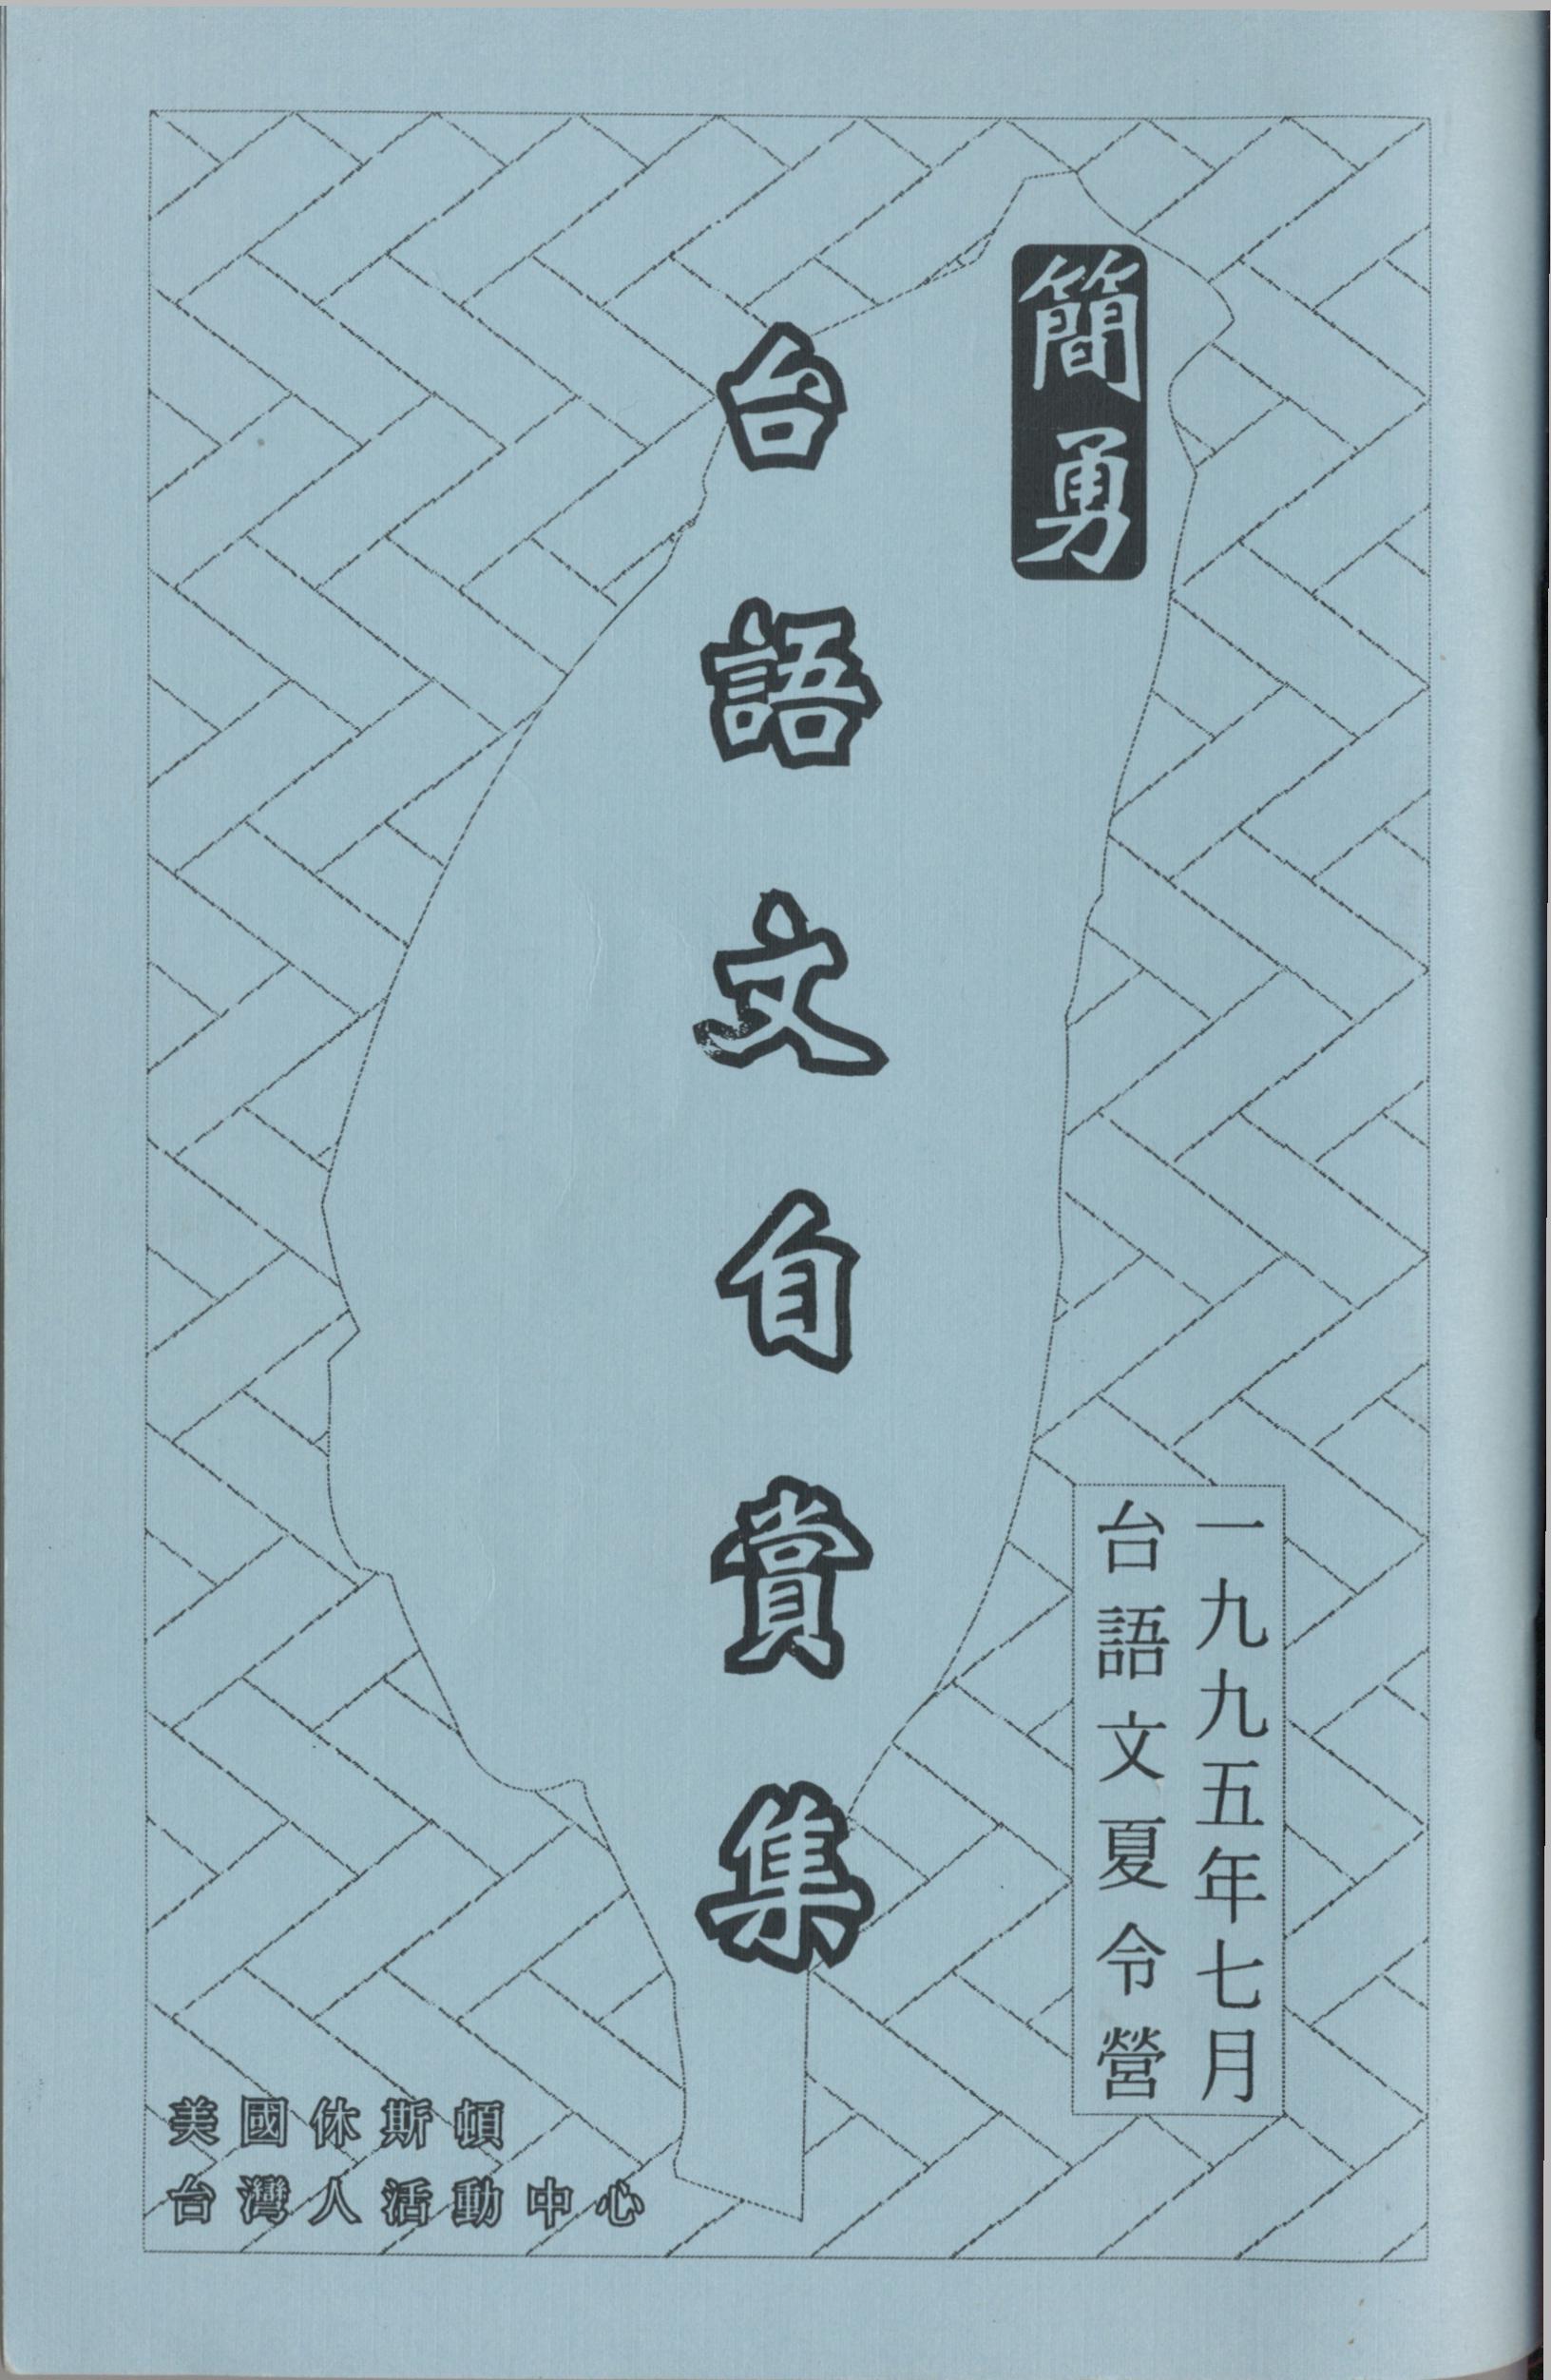 簡勇
台語文自賞集
一九九五年七月
台語文夏令營
美國休斯頓
台灣人活動中心